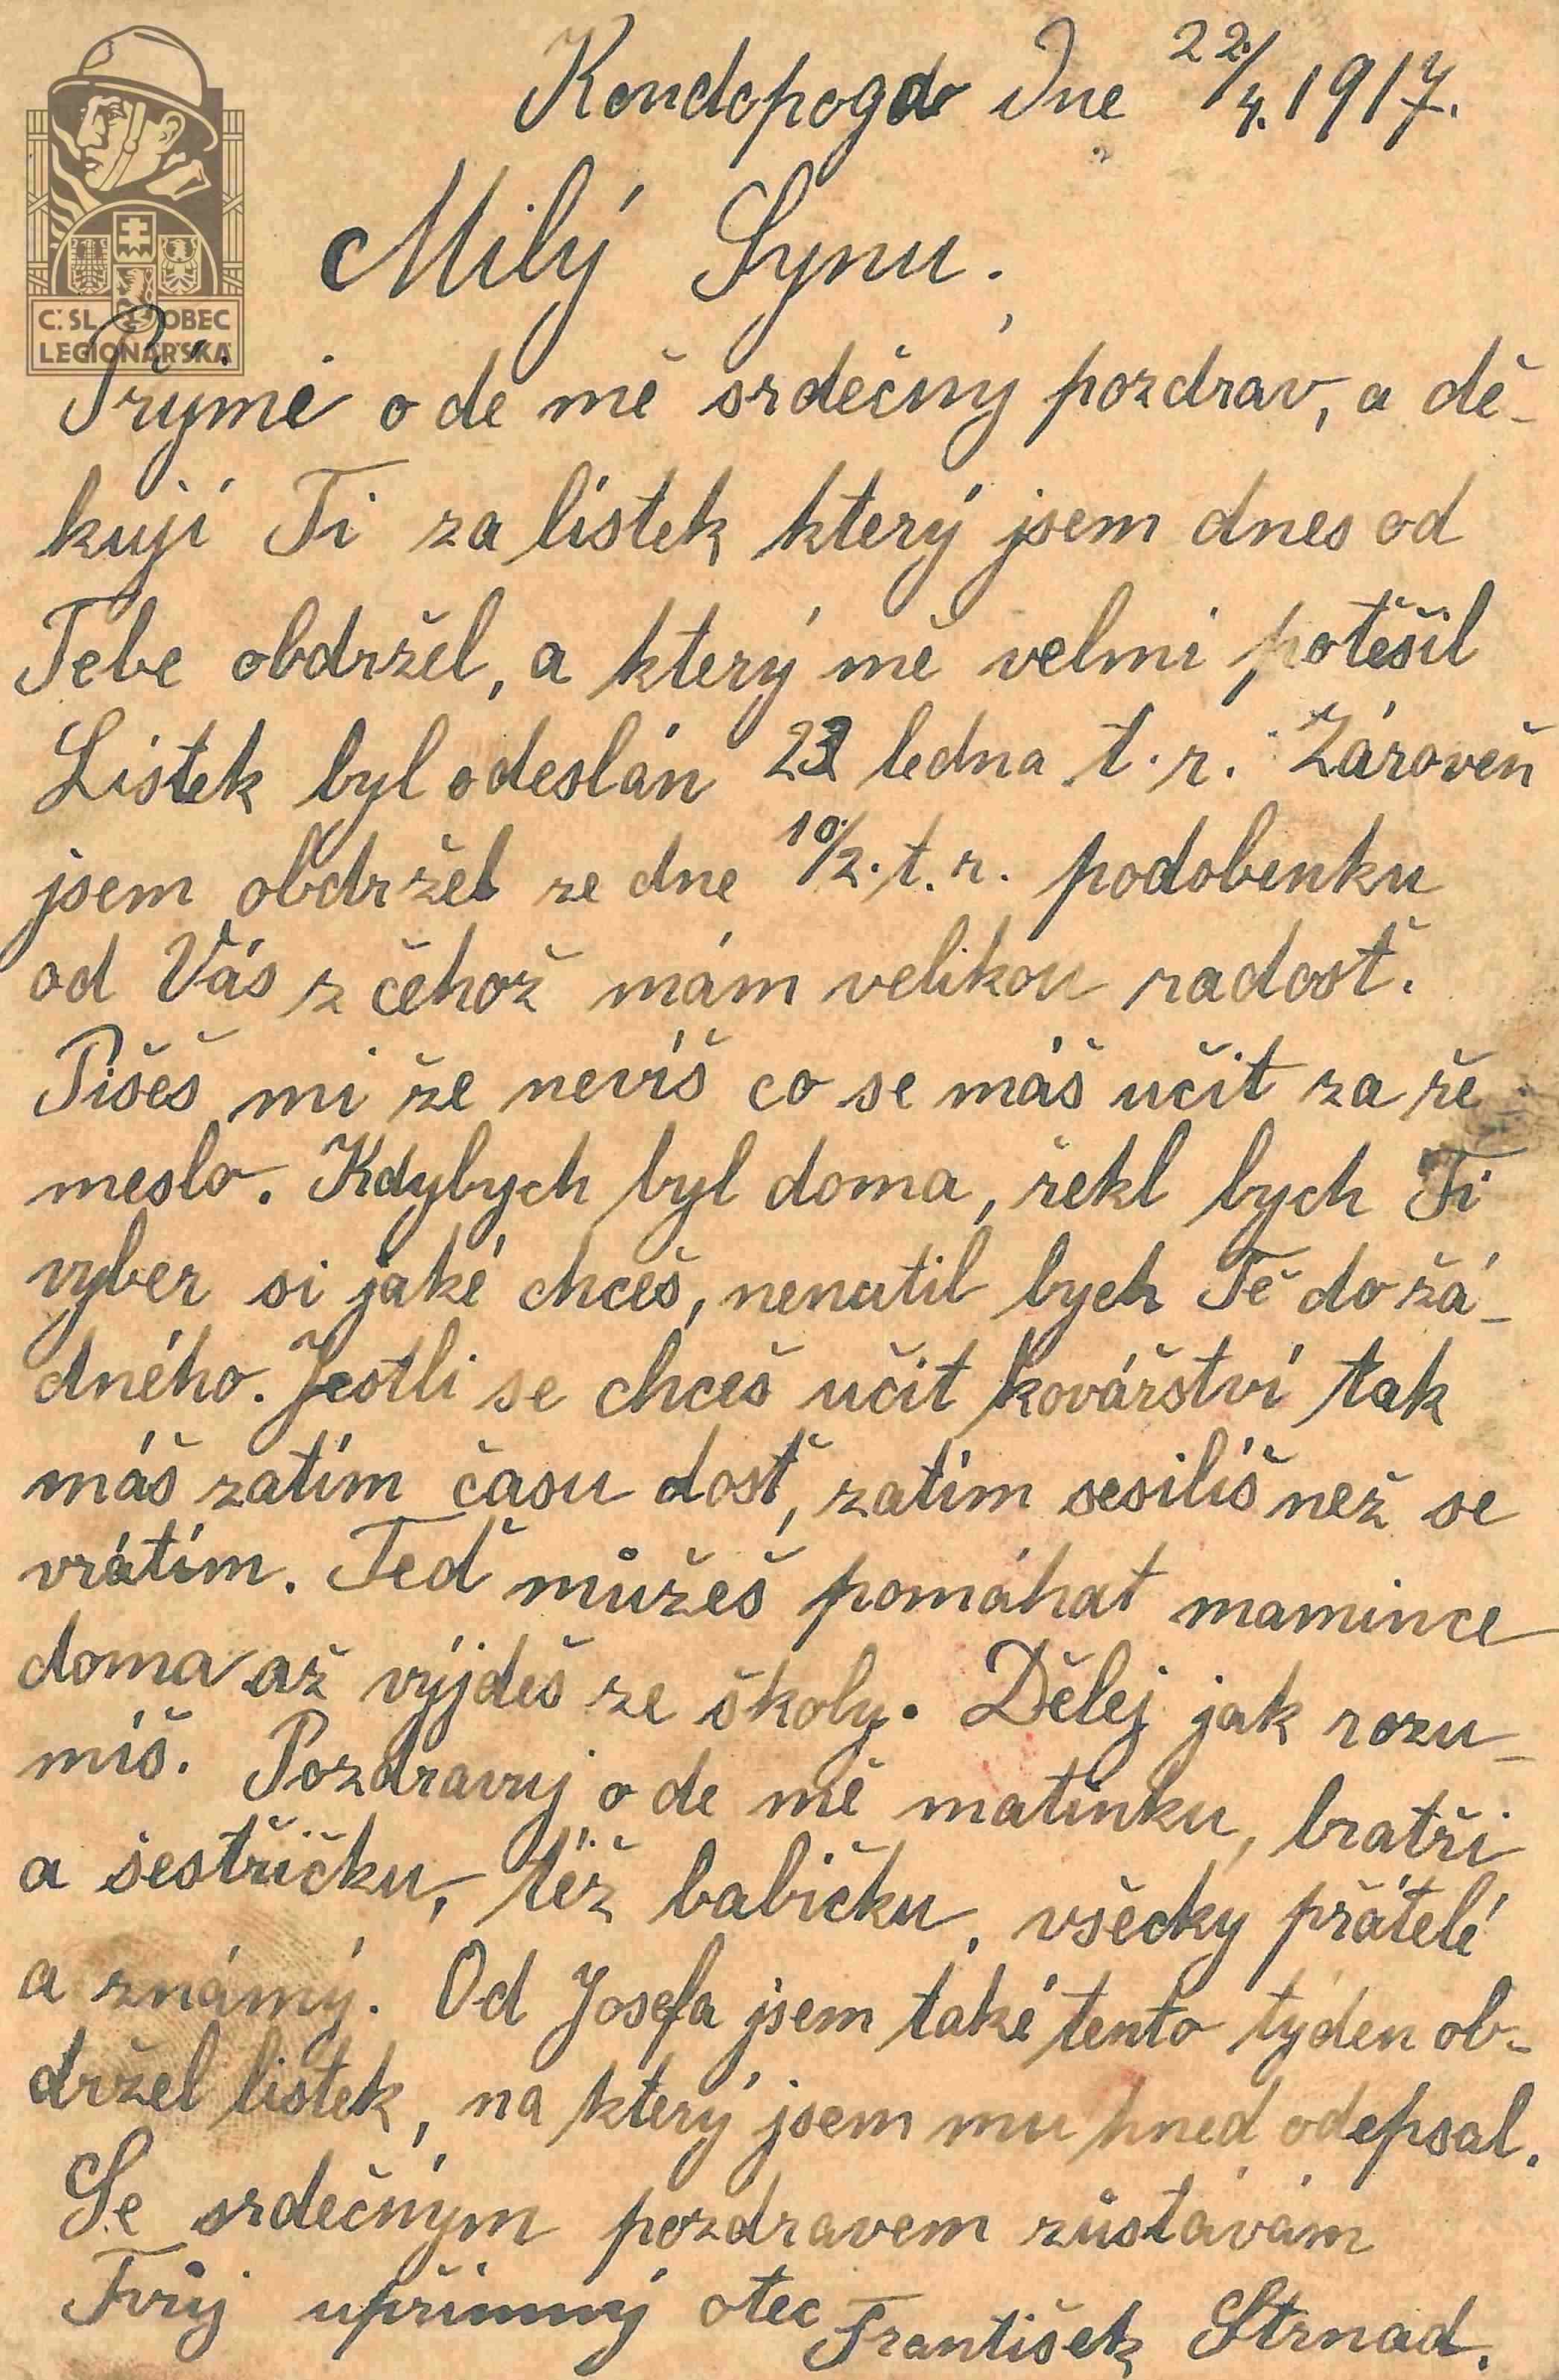 Kondopoga dne 22./4. 1917.
Milý Synu.
Č. SL. OBEC
LEGIONÁŘSKÁ
Přýmě ode mě srdečný pozdrav, a dě-
kují Ti za lístek který jsem dnes od
Tebe obdržel, a který mě velmi potěšil
Lístek byl odeslán 23 ledna t. r. Zároveň
jsem obdržel ze dne 10./2. t. r. podobenku
od Vás z čehož mám velikou radosť.
Píšeš mi že nevíš co se máš učit za ře
meslo. Kdybych byl doma, řekl bych Ti
vyber si jaké chceš, nenutil bych Tě do žá-
dného. Jestli se chceš učit kovářství tak
máš zatím času dosť, zatím sesílíš než se
vrátím. Teď můžeš pomáhat mamince
doma až výjdeš ze školy. Dělej jak rozu-
míš. Pozdravuj ode mě matinku, bratři
a sestřičku, též babičku, všecky přátelé
a známý. Od Josefa jsem také tento týden ob-
držel lístek, na který jsem mu hned odepsal.
Se srdečným pozdravem zůstávám
Tvůj upřímný otec František Strnad.